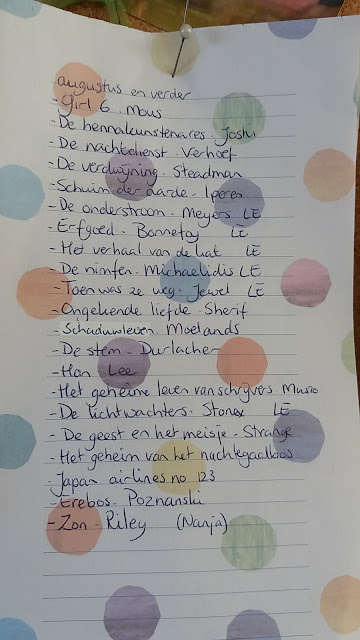 augustus en verder
- Girl 6. Mous
- De hennakunstenares. Joshi
- De nachtdienst. Verhoef
- De verdwijning. Steadman
- Schuim der aarde. Iperes
- De onderstroom. Meyers LE
- Erfgoed. Bonnefoy LE
- Het verhaal van de kat LE
- De nimfen. Michaelidis LE
- Toen was ze weg. Jewel LE
- Ongekende liefde. Sherif
- Schaduwleven. Moelands
- De stem. Durlacher
- Hon Lee
- Het geheime leven van schrijvers Musso
- De lichtwachters. Stonex LE
- De geest en het meisje. Strange
- Het geheim van het nachtegaalbos
- Japan airlines no 123
- Erebos. Poznanski
- Zon. Riley (Nanja)